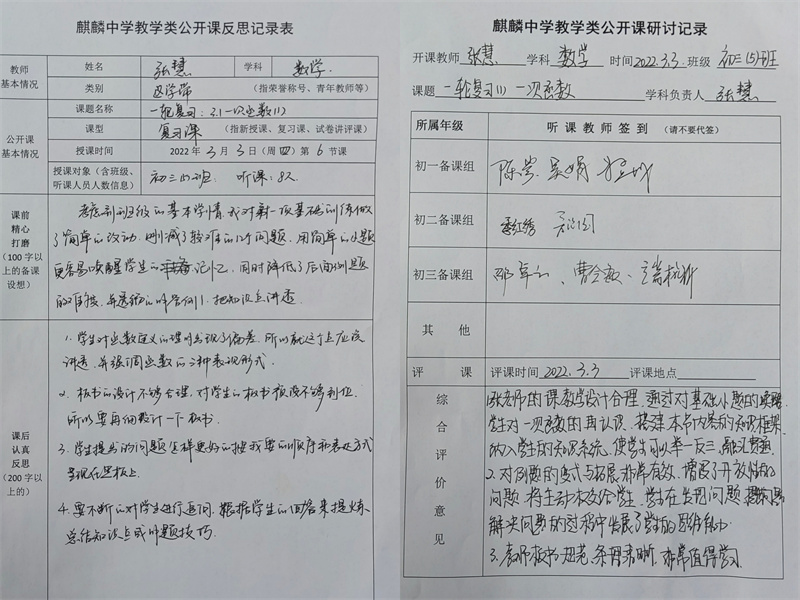 麒麟中学教学类公开课反思记录表
教师基本情况
姓名 张慧 学科 数学
类别 区学带 (指荣誉称号、青年教师等)
公开课基本情况
课题名称 一轮复习：3.1一次函数(1)
课型 复习课 (指新授课、复习课、试卷讲评课)
授课时间 2022年3月3日(周四)第6节课
授课对象(含班级、听课人员人数信息) 初三(5)班 听课：8人
课前精心打磨(100字以上的备课设想)
考虑到班级的基本学情，我对第一项基础的训练做
了简单的改动，删减了较难的几个问题，用简单的小题
更容易唤醒学生的记忆，同时降低了后面例题
的难度，并透彻的讲管例1，把知识点讲透
课后认真反思(200字以上的)
1. 学生对函数定义的理解出现了偏差，所以就这个点应该
讲透，并强调函数的三种表现形式.
2. 板书的设计不够合理，对学生的板书预设不够到位，
所以要再细设计一下板书.
3. 学生提出的问题怎样更好的按我要的顺序和表达方式
呈现在黑板上.
4. 要不断的对学生进行追问，根据学生的回答来提炼
总结知识点或解题技巧.
麒麟中学教学类公开课研讨记录
开课教师 张慧 学科 数学 时间 2022.3.3 班级 初三(5)班
课题 一轮复习(1) 一次函数 学科负责人 张慧
所属年级 听课教师签到 (请不要代签)
初一备课组
初二备课组 季红绣
初三备课组
其他
评课 评课时间 2022.3.3 评课地点
综合评价意见
1.张老师的课教学设计合理，通过对基础小题的实践
学生对一次函数的再认识，搭建本节内容的知识框架
纳入学生的知识系统，使学生可以举一反三，融汇贯通
2.对例题的变式与拓展非常有效，增设了开放性的
问题，将主动权交给学生，学生在发现问题 提出问题
解决问题的过程中发展了学生的思维能力
3.教师板书规范、条理清晰，非常值得学习.